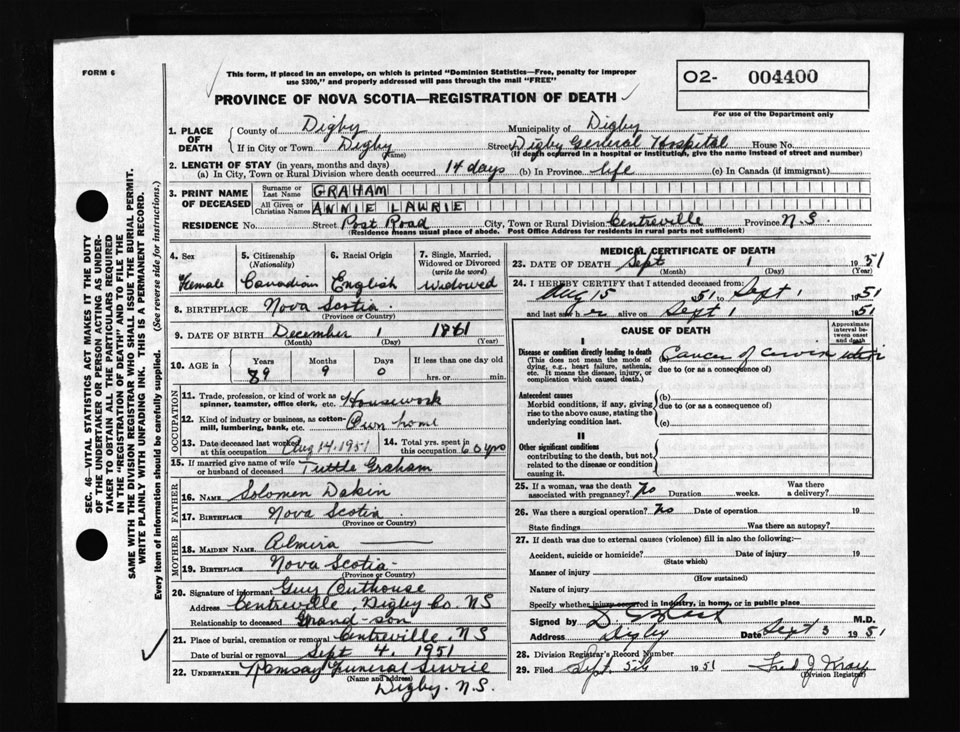 FORM 6
This form, if placed in an envelope, on which is printed "Dominion Statistics—Free, penalty for improper
use $300," and properly addressed will pass through the mail "FREE"
O2- 004400
PROVINCE OF NOVA SCOTIA—REGISTRATION OF DEATH
For use of the Department only
1. PLACE OF DEATH County of Digby Municipality of Digby
If in City or Town Digby (Name) Street Digby General Hospital House No.
(If death occurred in a hospital or institution, give the name instead of street and number)
2. LENGTH OF STAY (in years, months and days)
(a) In City, Town or Rural Division where death occurred 14 days (b) In Province life (c) In Canada (if immigrant)
3. PRINT NAME OF DECEASED Surname or Last Name GRAHAM
All Given or Christian Names ANNIE LAWRIE
RESIDENCE No. Street Post Road City, Town or Rural Division Centreville Province N.S.
(Residence means usual place of abode. Post Office Address for residents in rural parts not sufficient)
SEC. 46—VITAL STATISTICS ACT MAKES IT THE DUTY
OF THE UNDERTAKER OR PERSON ACTING AS UNDER-
TAKER TO OBTAIN ALL THE PARTICULARS REQUIRED
IN THE "REGISTRATION OF DEATH" AND TO FILE THE
SAME WITH THE DIVISION REGISTRAR WHO SHALL ISSUE THE BURIAL PERMIT.
WRITE PLAINLY WITH UNFADING INK. THIS IS A PERMANENT RECORD.
Every item of information should be carefully supplied. (See reverse side for instructions.)
4. Sex 5. Citizenship (Nationality) 6. Racial Origin 7. Single, Married, Widowed or Divorced (write the word)
Female Canadian English widowed
8. BIRTHPLACE Nova Scotia
(Province or Country)
9. DATE OF BIRTH December 1 1861
(Month) (Day) (Year)
10. AGE in Years Months Days If less than one day old
89 9 0 hrs. or min.
OCCUPATION
11. Trade, profession, or kind of work as
spinner, teamster, office clerk, etc. Housework
12. Kind of industry or business, as cotton-
mill, lumbering, bank, etc. Own home
13. Date deceased last worked at this occupation Aug 14, 1951 14. Total yrs. spent in this occupation 60 yrs
15. If married give name of wife or husband of deceased Tuttle Graham
FATHER
16. NAME Solomen Dakin
17. BIRTHPLACE Nova Scotia
(Province or Country)
MOTHER
18. MAIDEN NAME Almira
19. BIRTHPLACE Nova Scotia
(Province or Country)
20. Signature of informant Guy Outhouse
Address Centreville, Digby Co. N.S
Relationship to deceased Grand-son
21. Place of burial, cremation or removal Centreville, N.S
Date of burial or removal Sept 4, 1951
22. UNDERTAKER Ramsay Funeral Service
(Name and address)
Digby. N.S.
MEDICAL CERTIFICATE OF DEATH
23. DATE OF DEATH Sept 1 1951
(Month) (Day) (Year)
24. I HEREBY CERTIFY that I attended deceased from:
Aug 15 51 to Sept 1 1951
and last saw her alive on Sept 1 1951
CAUSE OF DEATH
Approximate interval between onset and death
I
Disease or condition directly leading to death
(This does not mean the mode of
dying, e.g., heart failure, asthenia.
It means the disease, injury, or
complication which caused death.)
Cancer of
due to (or as a consequence of)
Antecedent causes
Morbid conditions, if any, giving
rise to the above cause, stating the
underlying condition last.
(b)
due to (or as a consequence of)
(c)
II
Other significant conditions
contributing to the death, but not
related to the disease or condition
causing it.
25. If a woman, was the death associated with pregnancy? No Duration weeks. Was there a delivery?
26. Was there a surgical operation? No Date of operation 19
State findings Was there an autopsy?
27. If death was due to external causes (violence) fill in also the following:—
Accident, suicide or homicide? Date of injury 19
(State which)
Manner of injury
(How sustained)
Nature of injury
Specify whether injury occurred in industry, in home, or in public place
Signed by M.D.
Address Digby Date Sept 3 1951
28. Division Registrar's Record Number
29. Filed Sept. 5th 1951 Fred J Wray
(Division Registrar)